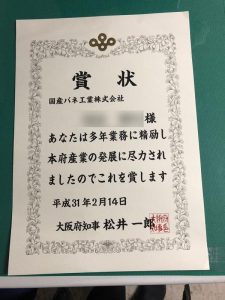 賞状
国産バネ工業株式会社
様
あなたは多年業務に精励し
本府産業の発展に尽力され
ましたのでこれを賞します
平成31年2月14日
大阪府知事 松井一郎